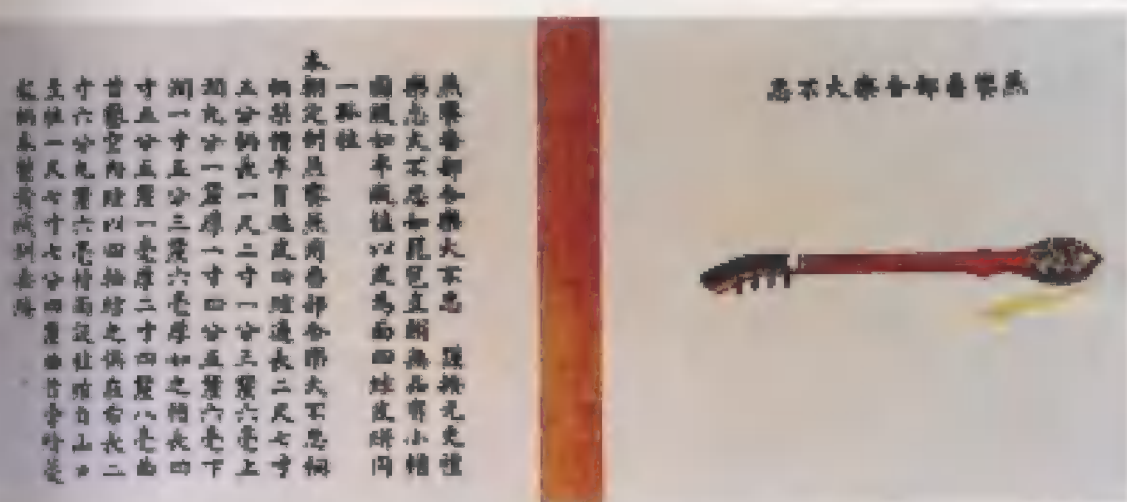 燕饗番部合樂火不思
燕饗番部合樂火不思 謹按元史禮
樂志火不思如琵琶直頸無品有小槽
圓腹如半瓶榼以皮為面四絃皮絣同
一孤柱
本朝定制燕饗番部合樂火不思桐
柄梨槽半冒蟒皮四絃通長二尺七寸
五分柄長一尺二寸一分三釐六毫上
闊九分一釐厚一寸四分五釐六毫下
闊一寸五分三釐六毫厚如之槽長四
寸五分五釐一毫厚二寸四釐八毫曲
首鑿空內絃以四軸綰之俱在右長二
寸六分九釐六毫槽面設柱自山口
至柱一尺七寸七分四釐曲首